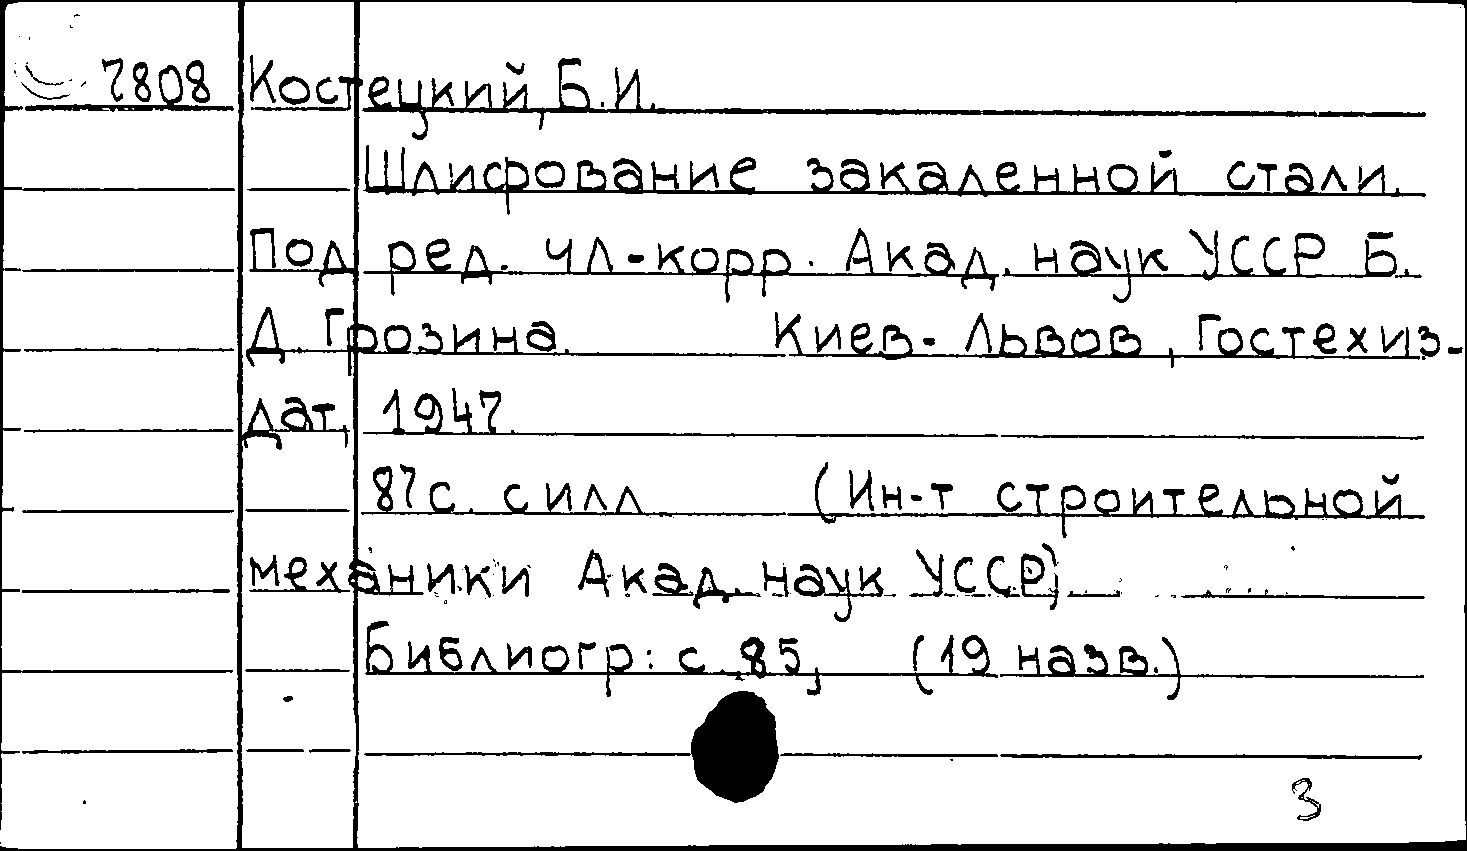 7808 Костецкий, Б.И.
Шлифование закаленной стали.
Под ред. чл-корр. Акад. наук УССР Б.
Д. Грозина. Киев-Львов, Гостехиз-
дат, 1947.
87с. с илл (Ин-т строительной
механики Акад. наук УССР)
Библиогр: с. 85, (19 назв.)
3